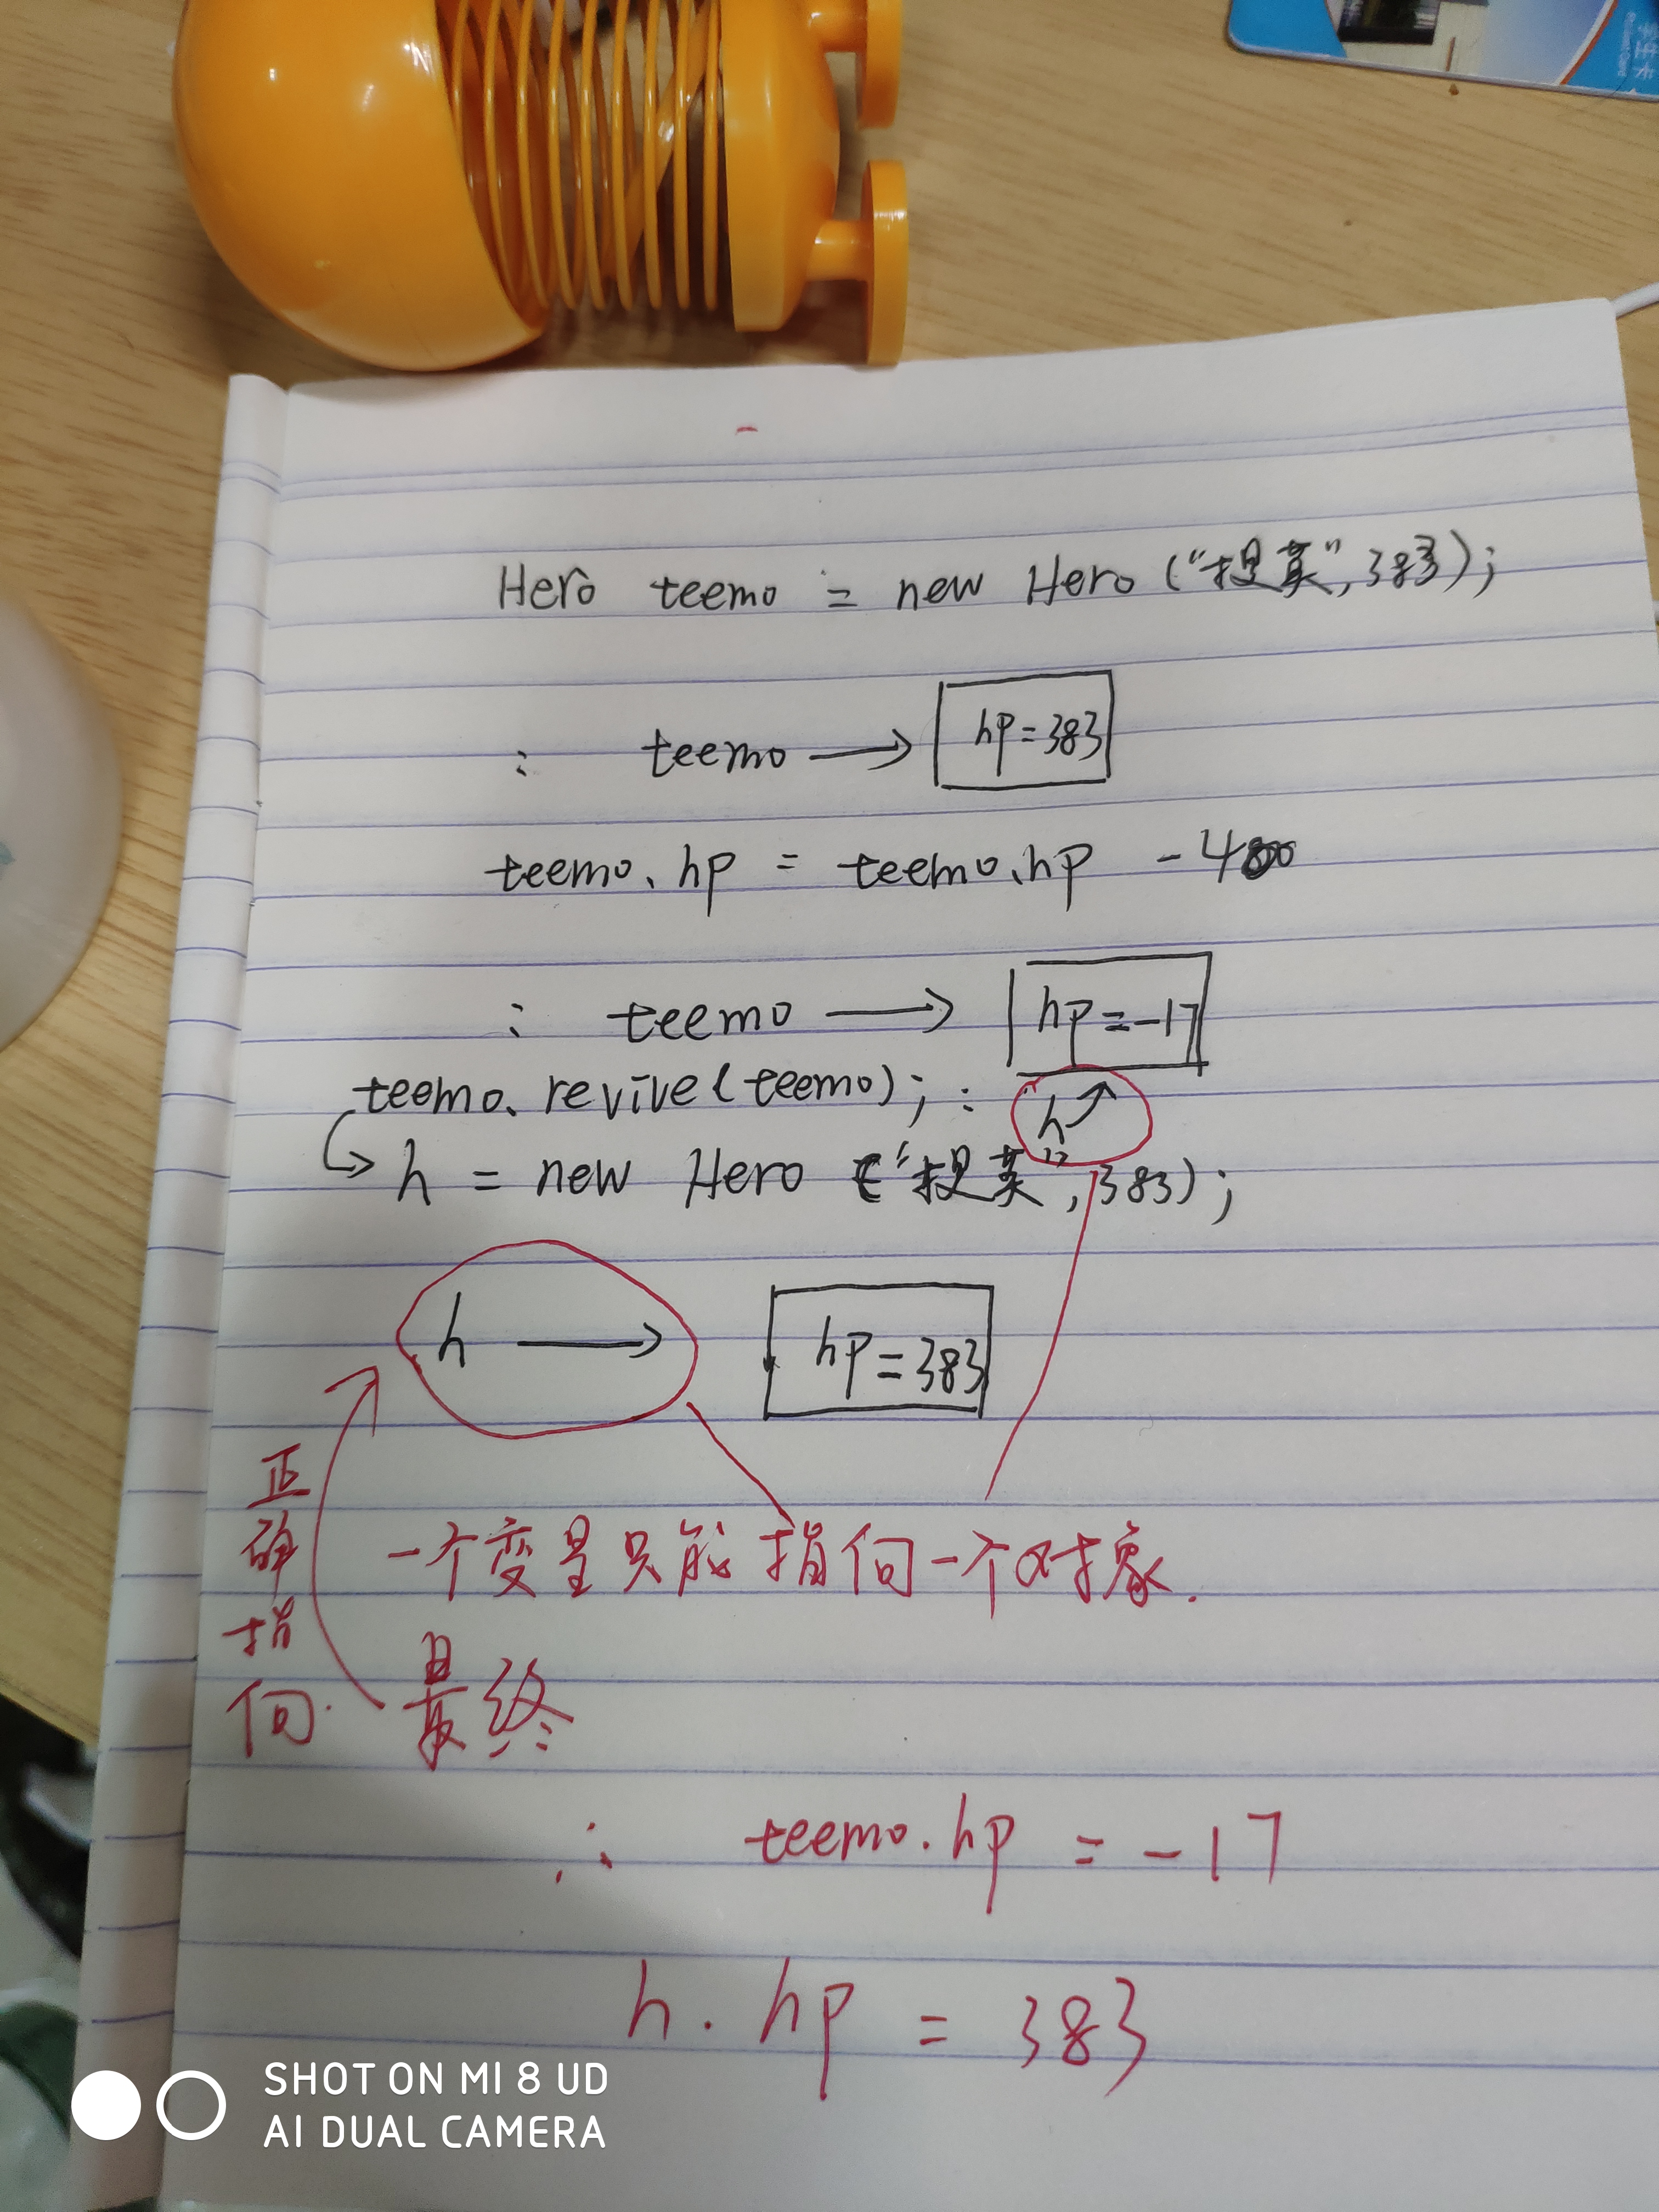 学生卡
Hero teemo = new Hero ("提莫", 383);
: teemo → hp=383
teemo.hp = teemo.hp - 400
: teemo → hp=-17
teemo.revive(teemo); : h
h = new Hero ("提莫", 383);
h → hp=383
正确指向
一个变量只能指向一个对象.
最终
∴ teemo.hp = -17
h.hp = 383
SHOT ON MI 8 UD
AI DUAL CAMERA